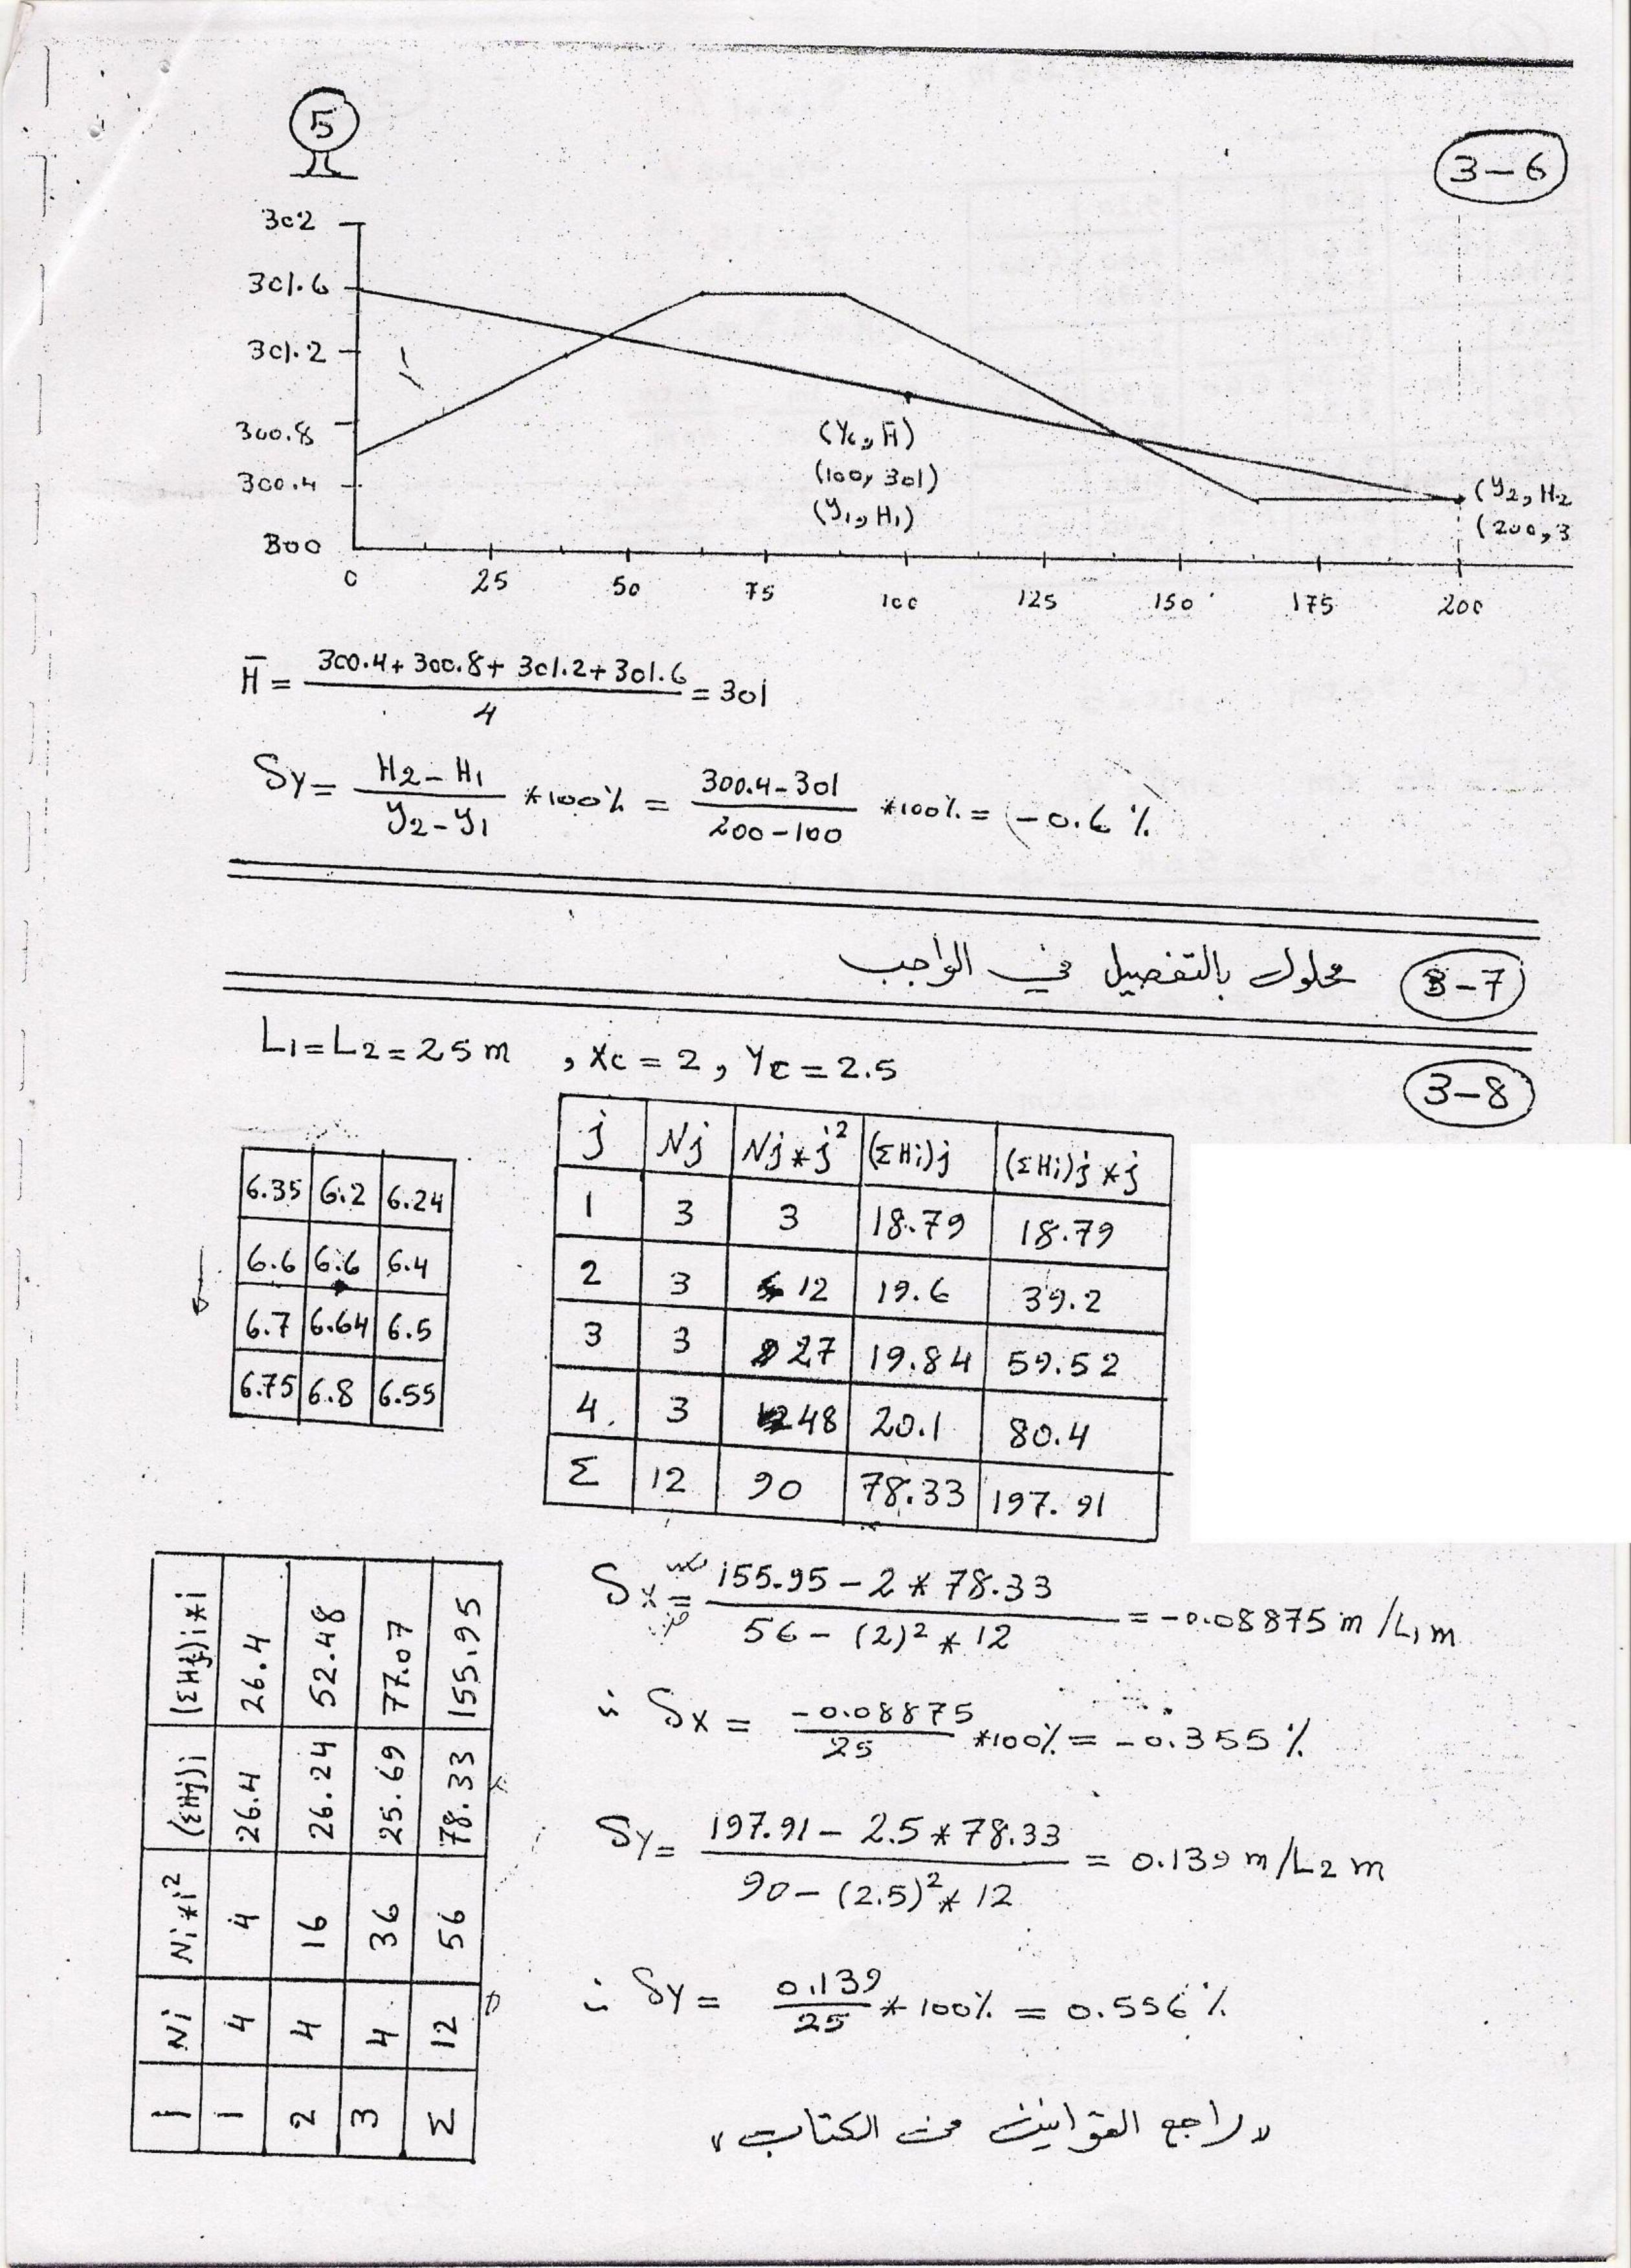 5
3-6
302
301.6
301.2
300.8
300.4
300
0 25 50 75 100 125 150 175 200
(Yc, H̄)
(100, 301)
(y1, H1)
(y2, H2
(200, 3
H̄ = (300.4 + 300.8 + 301.2 + 301.6) / 4 = 301
Sy = (H2 - H1) / (y2 - y1) *100% = (300.4 - 301) / (200 - 100) *100% = -0.6 %
3-7 محلول بالتفصيل في الواجب
3-8
L1 = L2 = 25 m , Xc = 2 , Yc = 2.5
6.35 6.2 6.24
6.6 6.6 6.4
6.7 6.64 6.5
6.75 6.8 6.55
j Nj Nj*j² (ΣHi)j (ΣHi)j*j
1 3 3 18.79 18.79
2 3 12 19.6 39.2
3 3 27 19.84 59.52
4 3 48 20.1 80.4
Σ 12 90 78.33 197.91
i Ni Ni*i² (ΣHj)i (ΣHj)i*i
1 4 4 26.4 26.4
2 4 16 26.24 52.48
3 4 36 25.69 77.07
Σ 12 56 78.33 155.95
Sx = (155.95 - 2 * 78.33) / (56 - (2)² * 12) = -0.08875 m / L1 m
∴ Sx = -0.08875 / 25 *100% = -0.355 %
Sy = (197.91 - 2.5 * 78.33) / (90 - (2.5)² * 12) = 0.139 m / L2 m
∴ Sy = 0.139 / 25 * 100% = 0.556 %
"راجع القوانين من الكتاب"